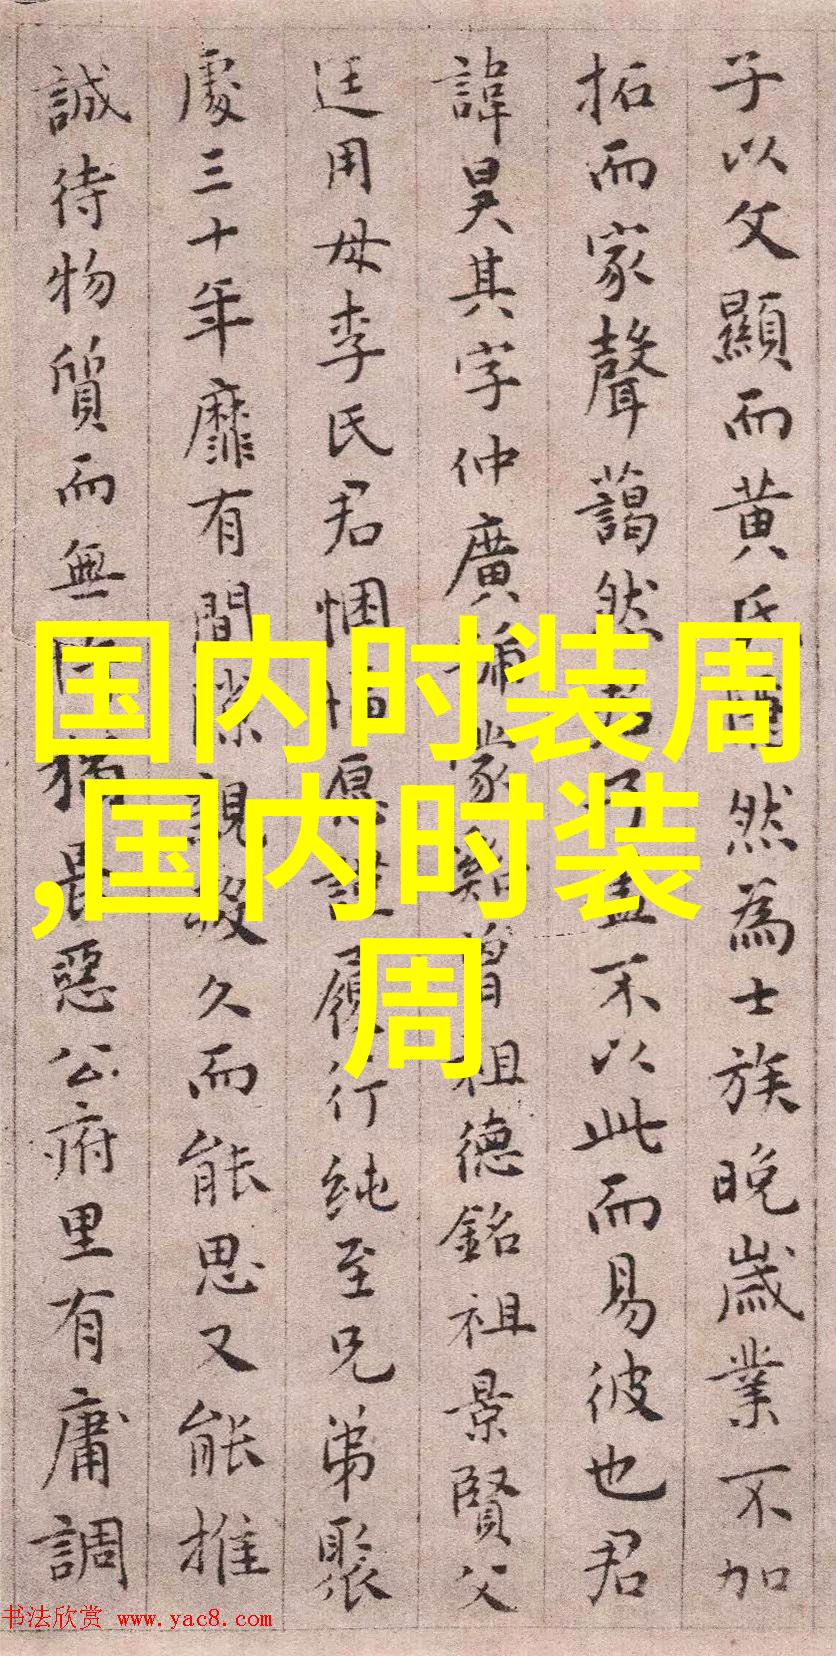 子以文顯而黄氏然為士族晚歲業不加
拓而家聲藹然不以此而易彼也君
諱昊其字仲廣蒙曾祖德銘祖景賢父
廷用母李氏君悃愊愿謹履行純至兄弟聚
處三十年靡有間隙親没久而能思又能推
誠待物質而無畏惡公府里有庸調
国内时装周
,国内时装
周
书法欣赏 www.yac8.com